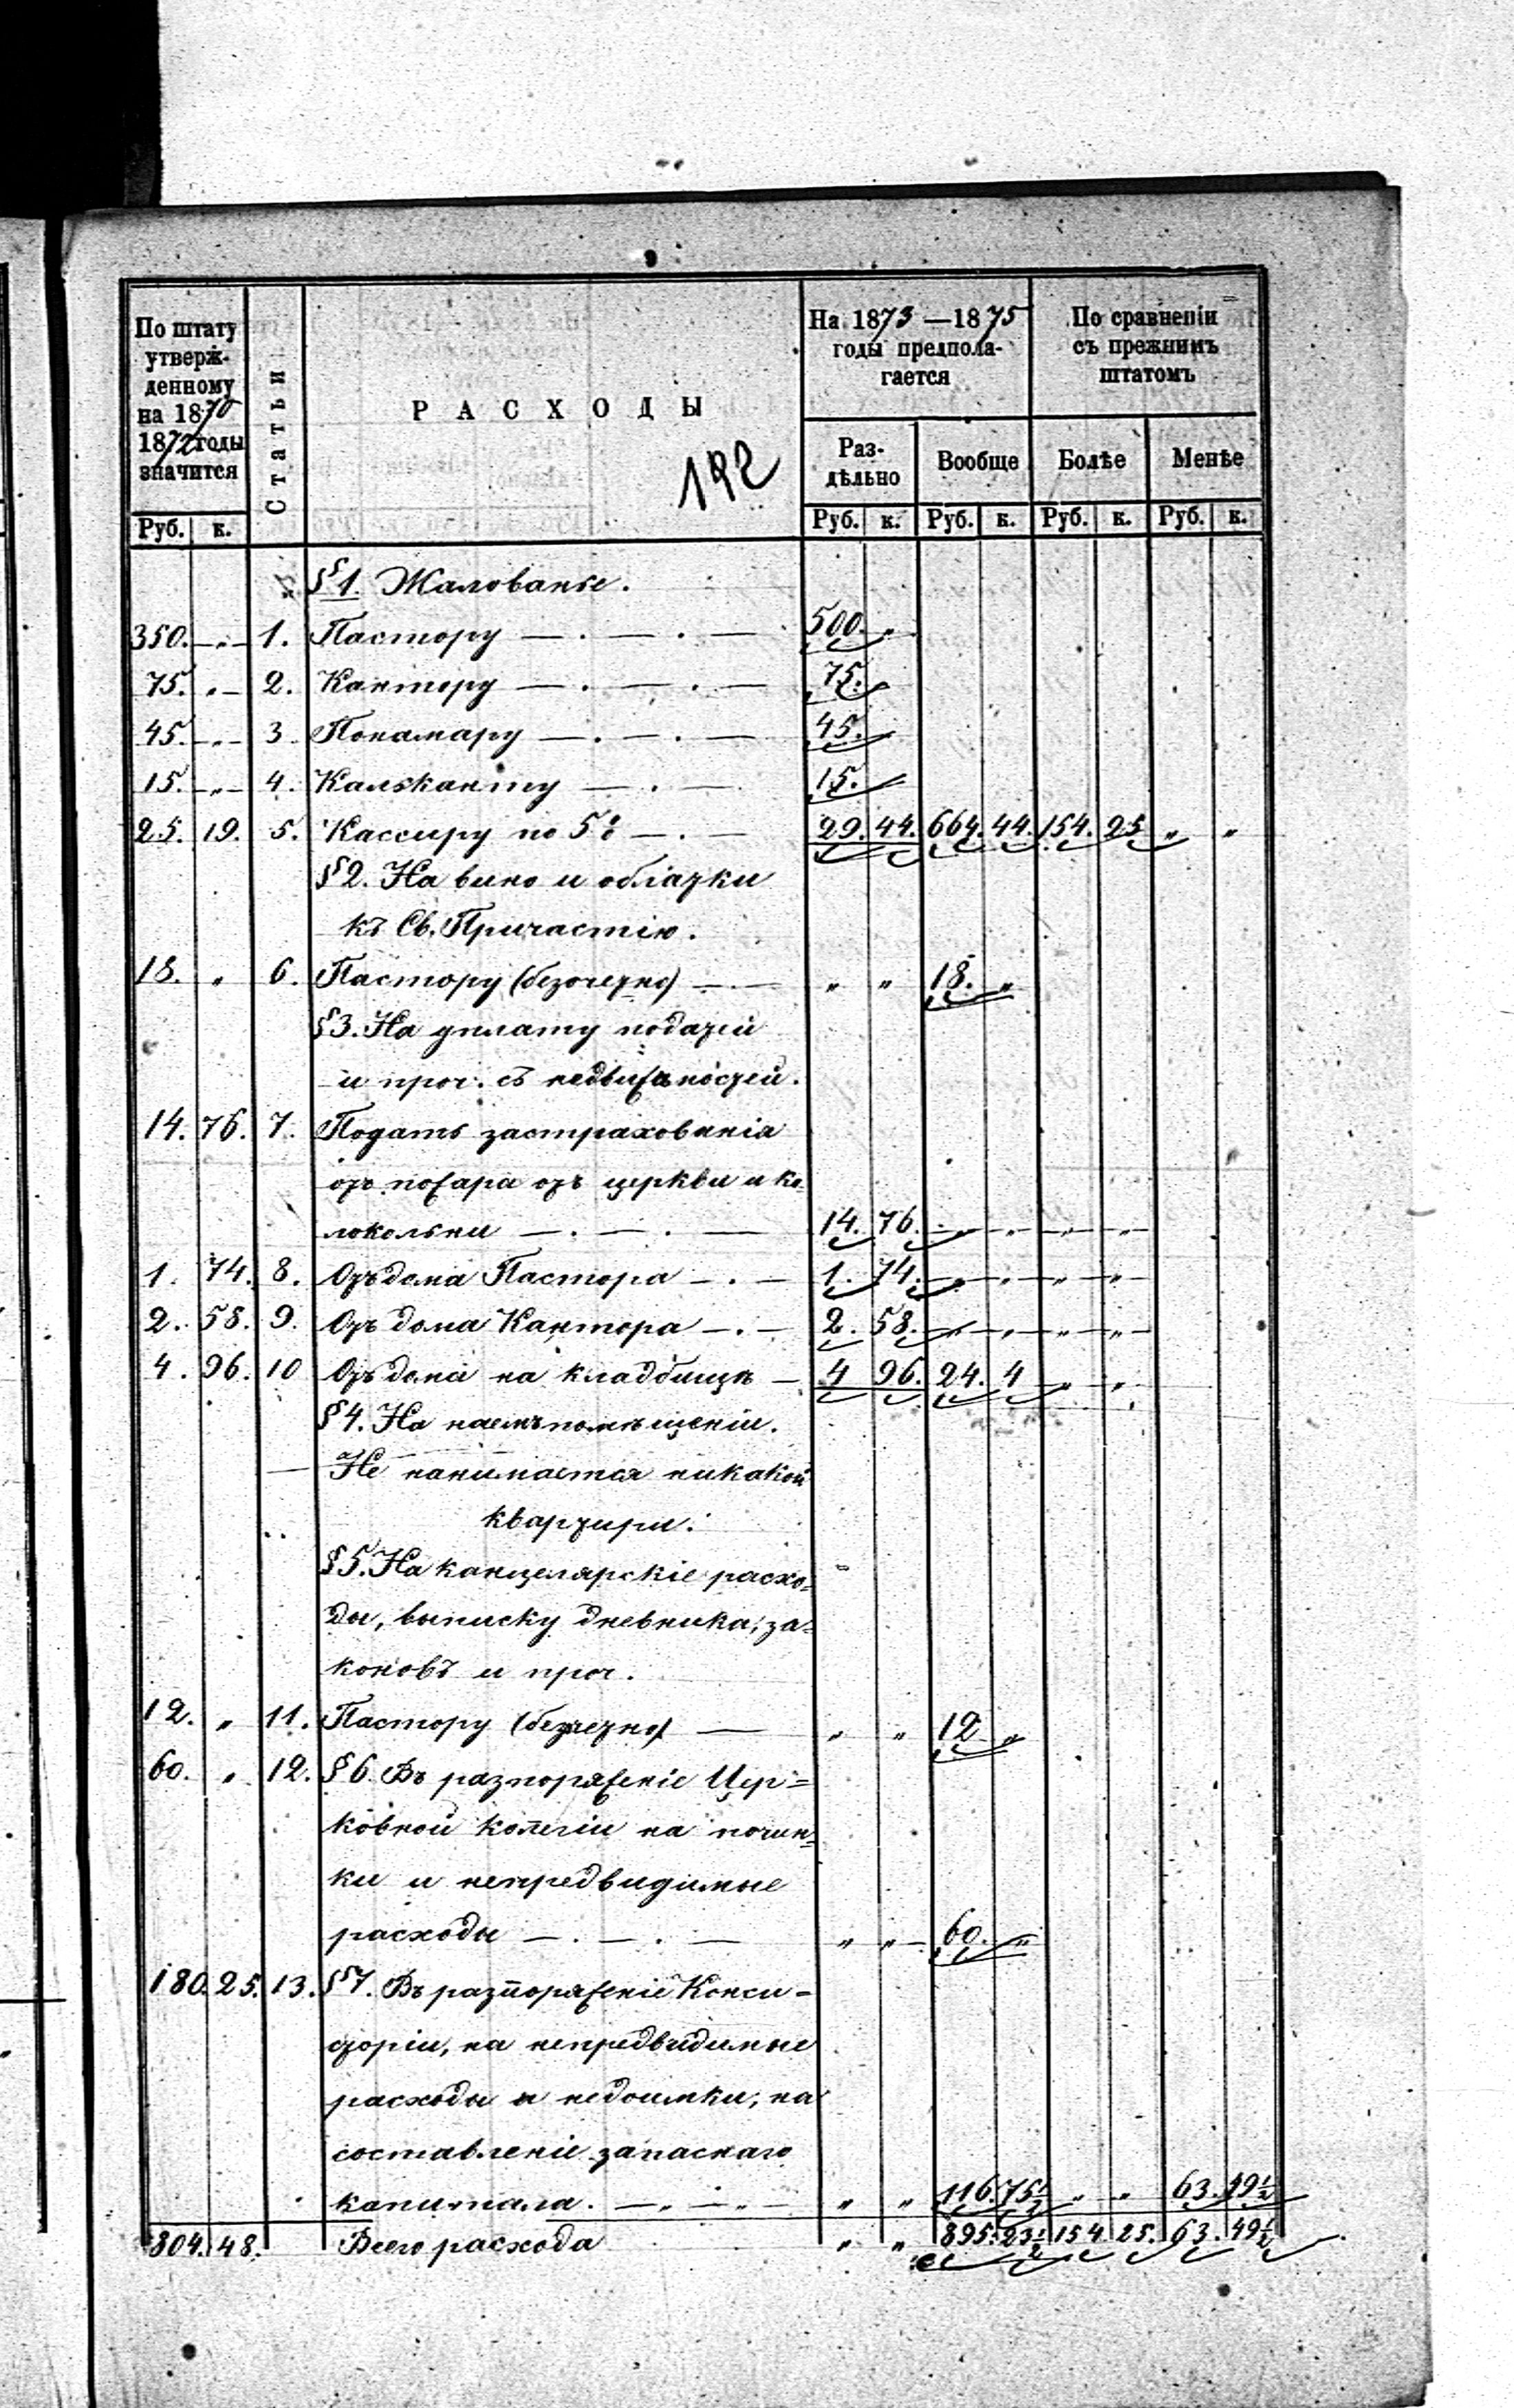 По штату утверж-
денному
на 1870
1872 годы
значится
Статьи
РАСХОДЫ
192
На 1873—1875
годы предпола-
гается
По сравненіи
съ прежнимъ
штатомъ
Раз-
дѣльно
Вообще
Болѣе
Менѣе
Руб. к. Руб. к. Руб. к. Руб. к. Руб. к.
§ 1. Жалованье.
350. „ 1. Пастору — . — . — 500. „
75. „ 2. Кантору — . — . — 75.
45. „ 3. Понамару — . — . — 45.
15. „ 4. Кальканту — . — 15.
25. 19. 5. Кассиру по 5% — . — 29. 44. 664. 44. 154. 25 „ „
§ 2. На вино и облатки
къ Св. Причастію.
18. „ 6. Пастору (безотчетно) — „ „ 18. „
§ 3. На уплату податей
и проч. съ недвижностей.
14. 76. 7. Подать застрахованія
отъ пожара отъ церкви и ко-
локольни — . — . — 14. 76. „ „ „ „
1. 74. 8. Отъ дома Пастора — . — 1. 74. „ „ „ „
2. 58. 9. Отъ дома Кантора — . — 2. 58. „ „ „ „
4. 96. 10 Отъ дома на кладбищѣ — 4 96. 24. 4 „ „
§ 4. На наемъ помѣщеніи.
— Не нанимается никакой
квартири.
§ 5. На канцелярскіе расхо-
ды, выписку дневника, за-
коновъ и проч.
12. „ 11. Пастору (безотчетно) — „ „ 12 „
60. „ 12. § 6. Въ разпоряженіе Цер-
ковной колегіи на почин-
ки и непредвидимые
расходы — . — . — „ „ 60. „
180. 25. 13. § 7. Въ разпоряженіе Конси-
сторіи, на непредвидимые
расходы и недоимки, на
составленіе запаснаго
капитала. — „ „ 116. 75½ „ „ 63. 49½
804. 48. Всего расхода „ „ 895. 23½ 154. 25. 63. 49½